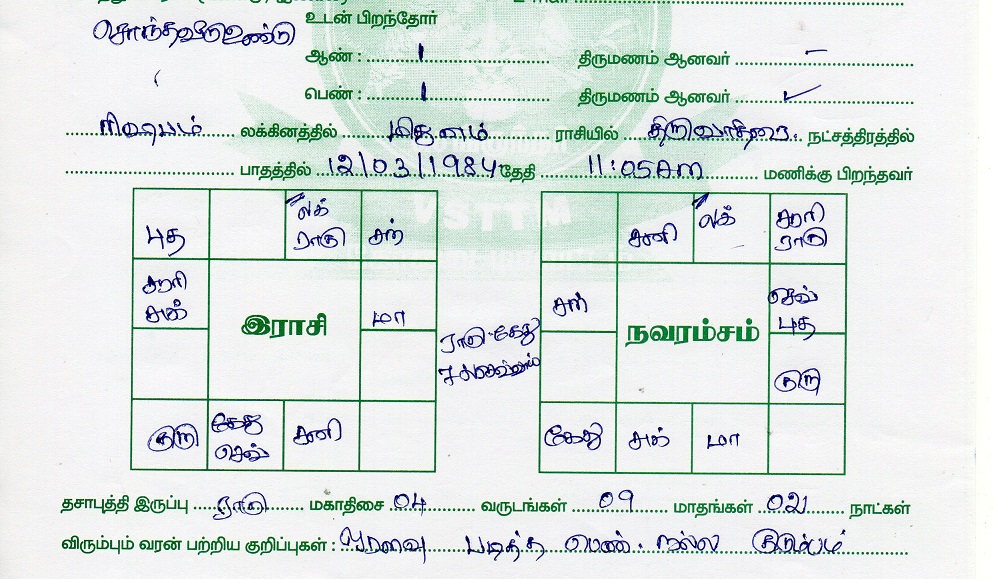 சொந்தவீடு உண்டு
உடன் பிறந்தோர்
ஆண் : 1 திருமணம் ஆனவர் –
பெண் : 1 திருமணம் ஆனவர் ✓
ரிஷபம் லக்கினத்தில் மிதுனம் ராசியில் திருவாதிரை நட்சத்திரத்தில்
பாதத்தில் 12/03/1984 தேதி 11:05 AM மணிக்கு பிறந்தவர்
புத லக் ராகு சந்
சூரி சுக் மா
இராசி
குரு கேது செவ் சனி
ராகு-கேது
சனி லக் சூரி ராகு
சந் செவ் புத
நவரம்சம்
குரு
கேது சுக் மா
தசாபுத்தி இருப்பு ராகு மகாதிசை 04 வருடங்கள் 09 மாதங்கள் 021 நாட்கள்
விரும்பும் வரன் பற்றிய குறிப்புகள் : படித்த பெண். நல்ல குடும்பம்